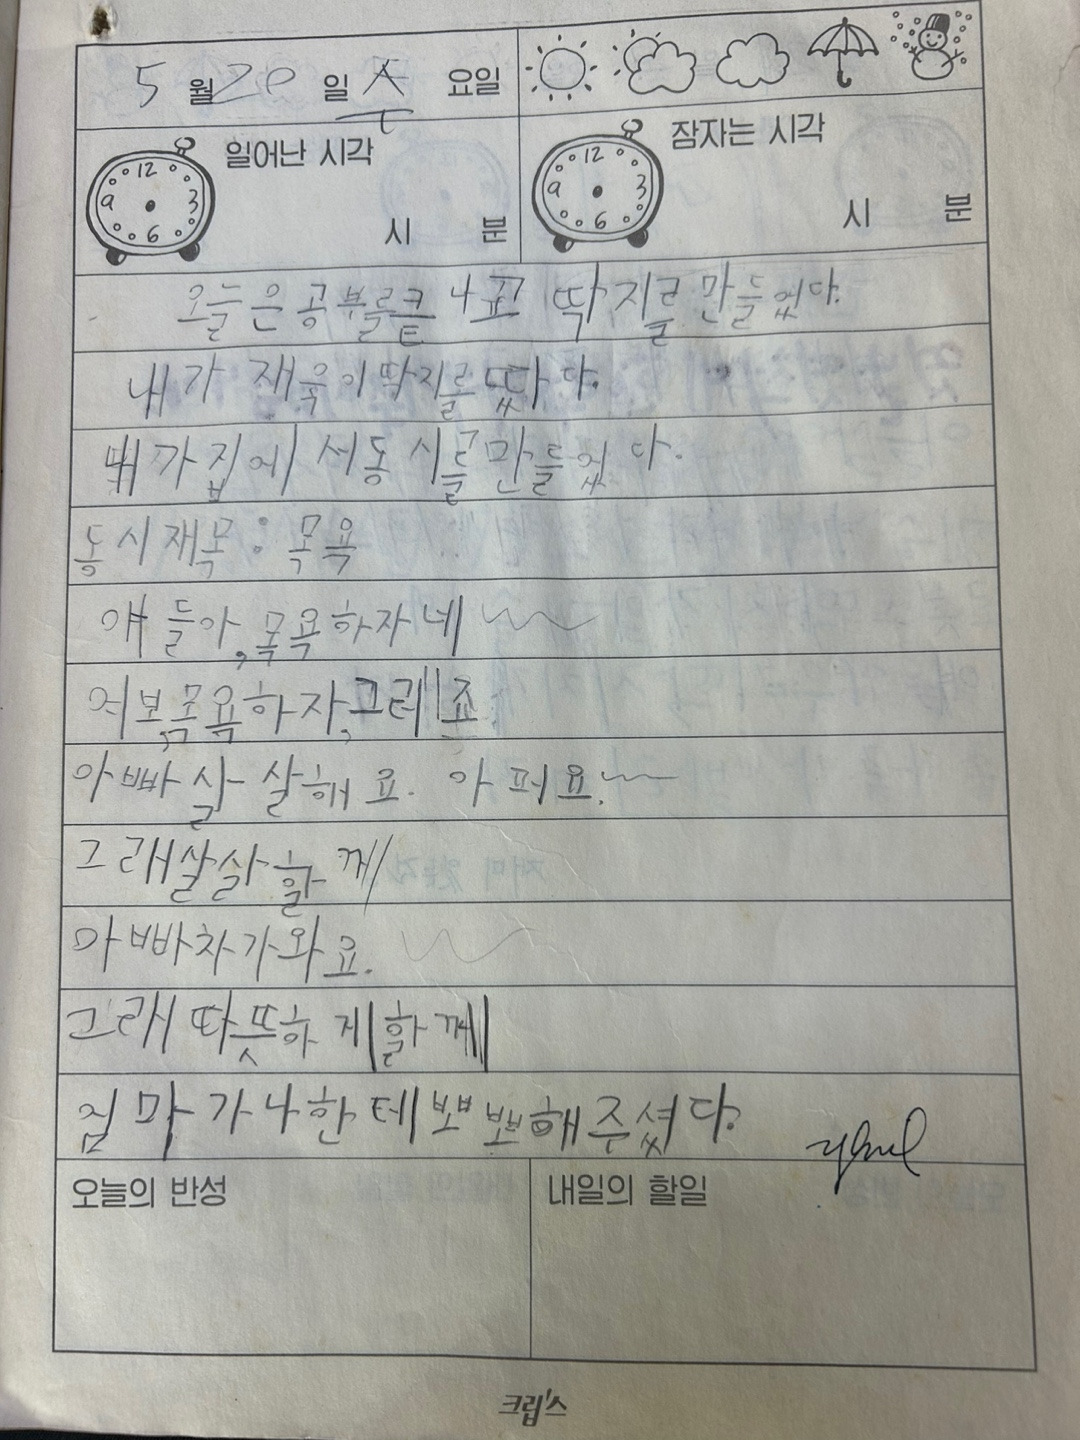 5 월 20 일 수 요일
일어난 시각
12 3 6 9
시 분
잠자는 시각
12 3 6 9
시 분
오늘은 공부를 나 딱지를 만들었다.
내가 재욱이 딱지를 땄다.
내가 집에서 동시를 만들었다.
동시제목: 목욕
얘들아, 목욕하자 네
여보, 목욕하자, 그래죠
아빠 살살해요. 아퍼요.
그래 살살 할께
아빠 차가와요.
그래 따뜻하게 할께
엄마가 나한테 뽀뽀해 주셨다.
오늘의 반성
내일의 할일
크립스